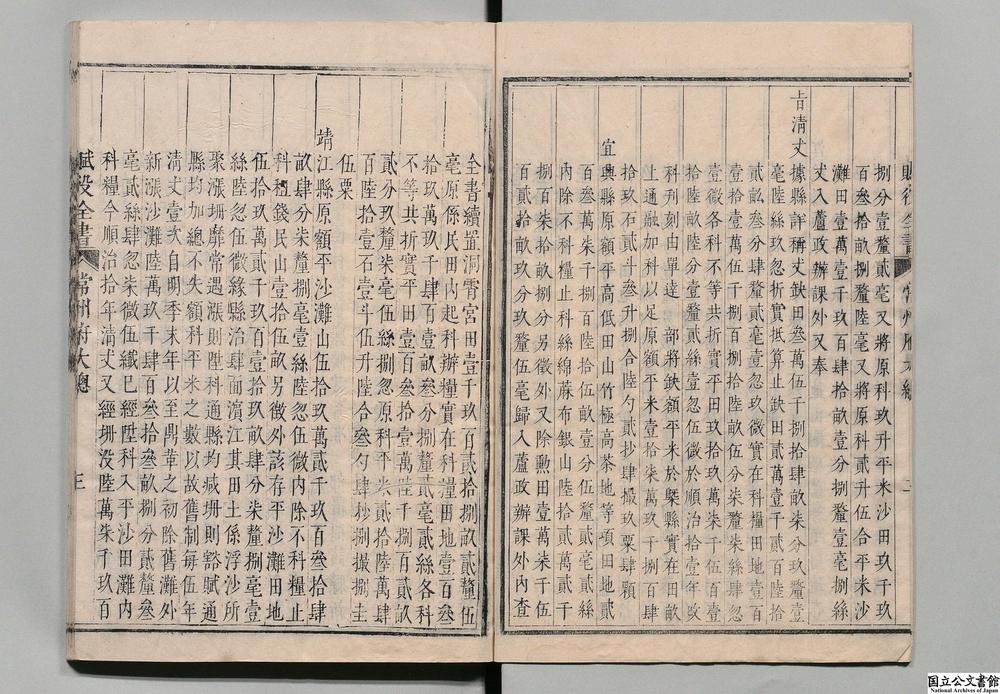 捌分壹釐貳毫又將原科玖升平米沙田玖千玖
百叁拾畝捌釐陸毫又將原科貳升伍合平米沙
灘田壹萬壹千玖百肆拾畝壹分捌釐壹毫捌絲
丈入蘆政辦課外又奉
旨清丈據縣詳稱丈缺田叁萬伍千捌拾肆畝柒分玖釐壹
毫陸絲玖忽折實抵算止缺田貳萬壹千貳百陸拾
貳畝叁分肆釐貳毫壹忽玖微實在科糧田地壹百
拾壹萬伍千壹百捌拾陸畝伍分柒釐柒絲肆忽
壹微各科不等共折實平田玖拾玖萬柒千伍百壹
拾玖畝叁分壹釐貳絲壹忽伍微於順治拾壹年改
科刋刻由單達 部將缺額平米於槩縣實在田畝
上通融加科以足原額平米壹拾柒萬玖千捌百肆
拾玖石貳斗叁升捌合陸勺貳抄肆撮玖粟肆顆
宜興縣原額平高低田山竹極高茶地等項田地貳
百叁萬柒千伍百陸拾捌畝壹分捌釐貳毫貳絲
內除不科糧止科絲綿蔴布銀山陸拾貳萬貳千
捌百柒拾捌畝捌分另徵外又除勲田壹萬柒千伍
百貳拾畝玖分玖釐伍毫歸入蘆政辦課外內查
全書續置洞霄宮田壹千玖百貳拾捌畝貳釐伍
毫原係民田內起科辦糧實在科糧田地壹百叁
拾玖萬玖千肆百壹畝叁分捌釐貳毫貳絲各科
不等共折實平田壹百叁拾壹萬陸千捌百貳畝
貳分玖釐柒毫伍絲捌忽原科平米貳拾陸萬肆
百陸拾壹石壹斗伍升陸合叁勺肆秒捌撮捌圭
伍粟
靖江縣原額平沙灘山伍拾玖萬貳千玖百叁拾肆
畝肆分柒釐捌毫壹絲陸忽伍微內除不科糧止
科租錢民山壹拾伍畝另徵外該存平沙灘田地
伍拾玖萬貳千玖百壹拾玖畝肆分柒釐捌毫壹
絲陸忽伍微緣縣治肆面濵江其田土係浮沙所
聚漲坍靡常遇漲則陞科通縣均減坍則豁賦通
縣均加總不失額科平米之數以故舊制每伍年
清丈壹次自明季末年以至鼎革之初除舊灘外
新漲沙灘陸萬玖千肆百叁拾叁畝捌分貳釐叁
毫貳絲肆忽柒微伍纖已經陞科入平沙田灘內
科糧今順治拾年清丈又經坍没陸萬柒千玖百
賦役全書 常州府大總 三